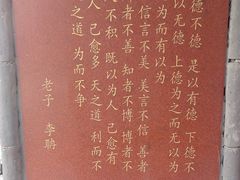 德不德 是以有德 下德不
以无德 上德为之而无以
为而有以为
信言不美 美言不信 善者
者不善 知者不博 博者不
不积 既以为人 己愈有
人 己愈多 天之道 利而不
之道 为而不争
老子 李聃